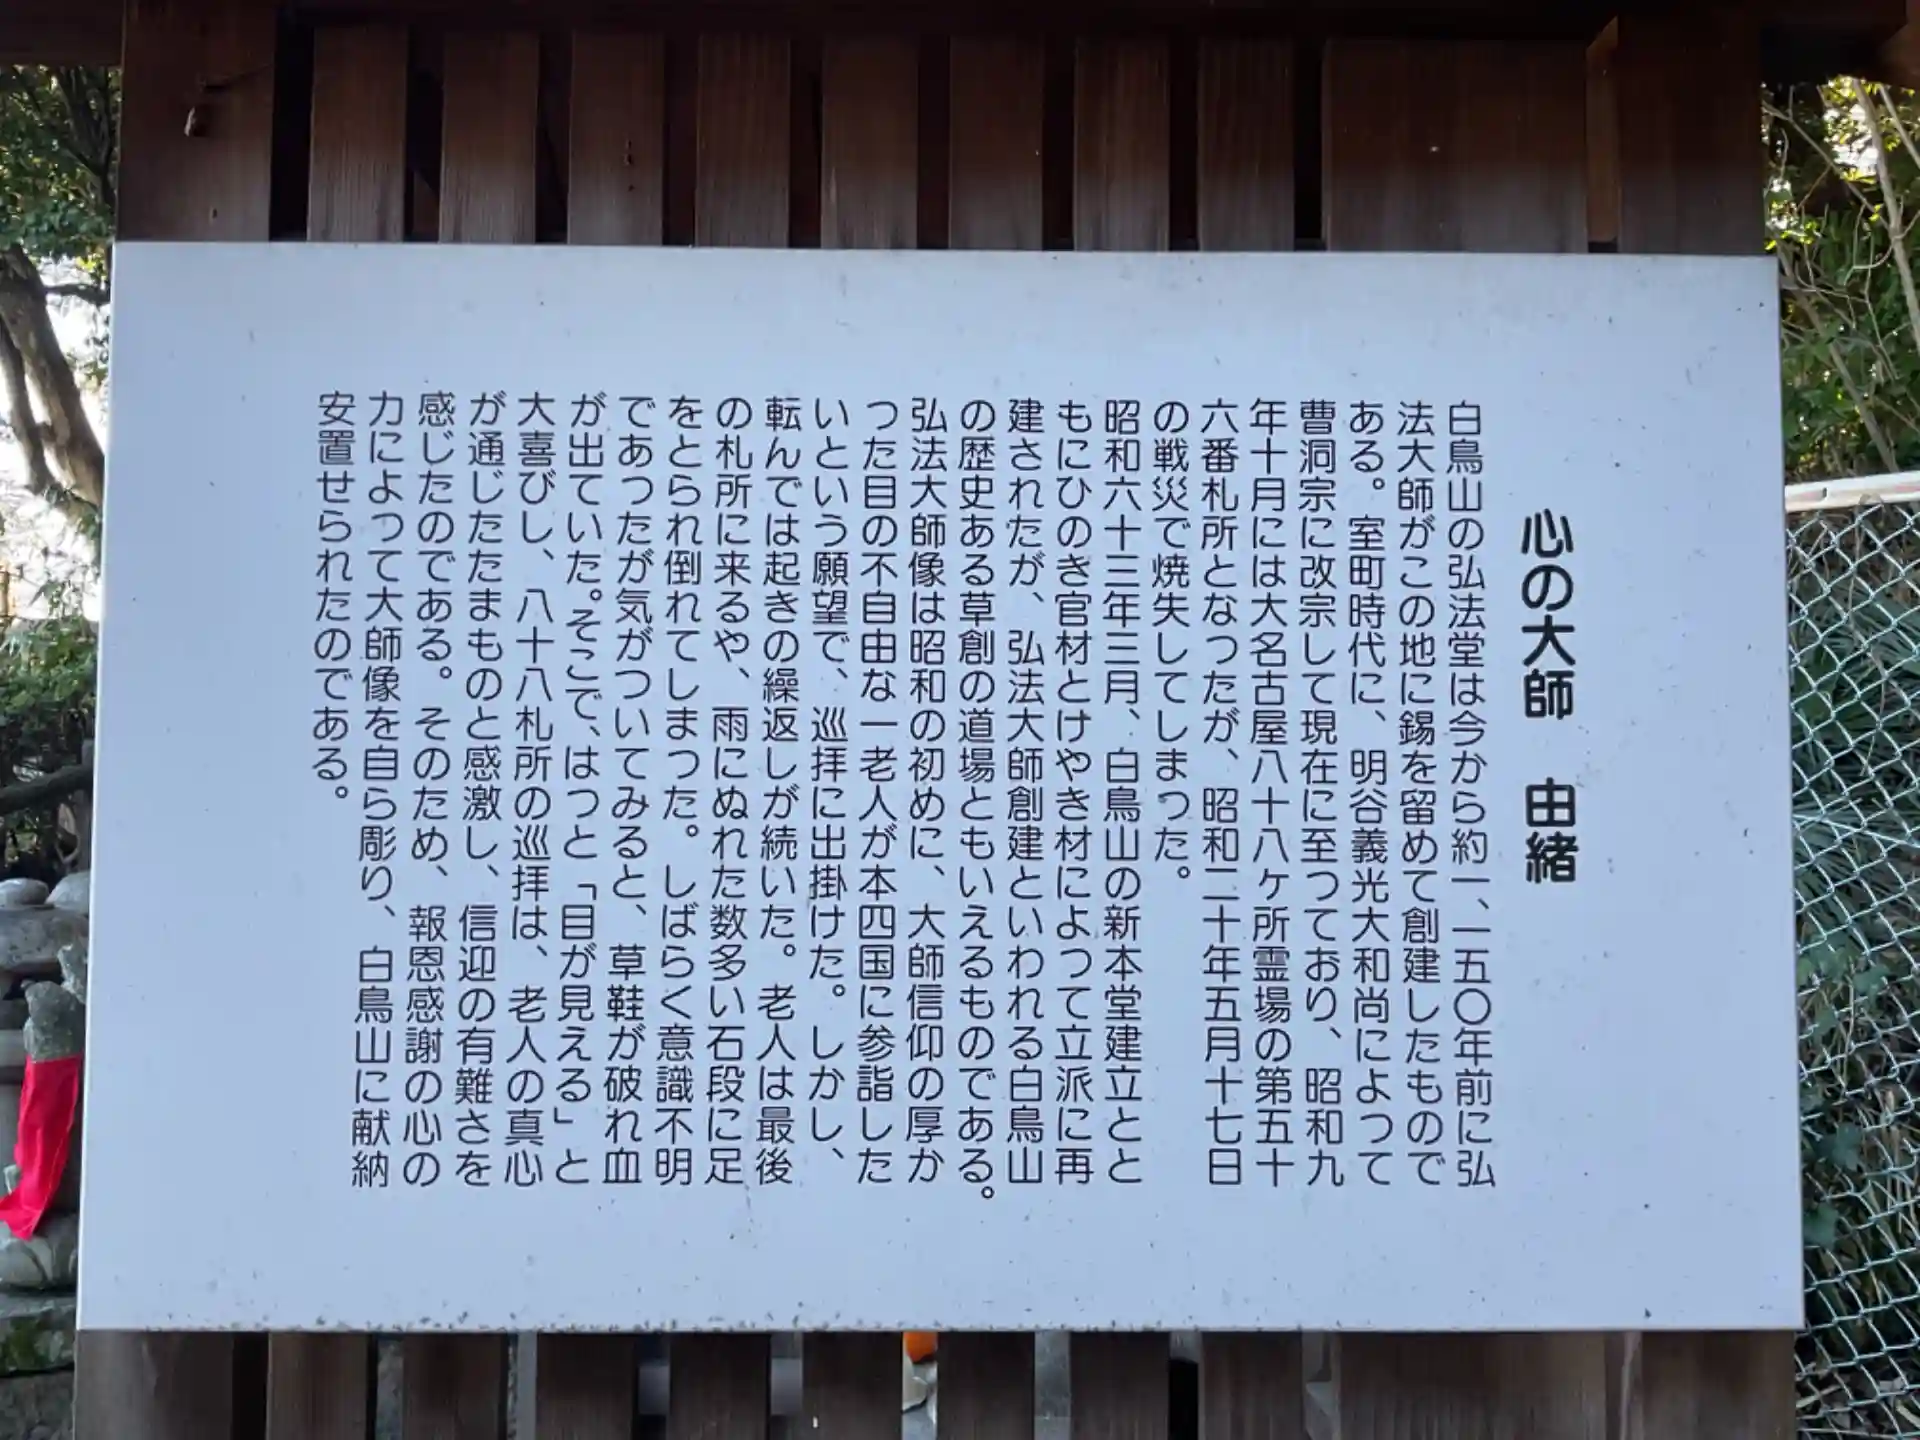 心の大師　由緒
白鳥山の弘法堂は今から約一、一五〇年前に弘
法大師がこの地に錫を留めて創建したもので
ある。室町時代に、明谷義光大和尚によって
曹洞宗に改宗して現在に至っており、昭和九
年十月には大名古屋八十八ヶ所霊場の第五十
六番札所となったが、昭和二十年五月十七日
の戦災で焼失してしまった。
昭和六十三年三月、白鳥山の新本堂建立とと
もにひのき官材とけやき材によって立派に再
建されたが、弘法大師創建といわれる白鳥山
の歴史ある草創の道場ともいえるものである。
弘法大師像は昭和の初めに、大師信仰の厚か
った目の不自由な一老人が本四国に参詣した
いという願望で、巡拝に出掛けた。しかし、
転んでは起きの繰返しが続いた。老人は最後
の札所に来るや、雨にぬれた数多い石段に足
をとられ倒れてしまった。しばらく意識不明
であったが気がついてみると、草鞋が破れ血
が出ていた。そこで、はっと「目が見える」と
大喜びし、八十八札所の巡拝は、老人の真心
が通じたたまものと感激し、信迎の有難さを
感じたのである。そのため、報恩感謝の心の
力によって大師像を自ら彫り、白鳥山に献納
安置せられたのである。